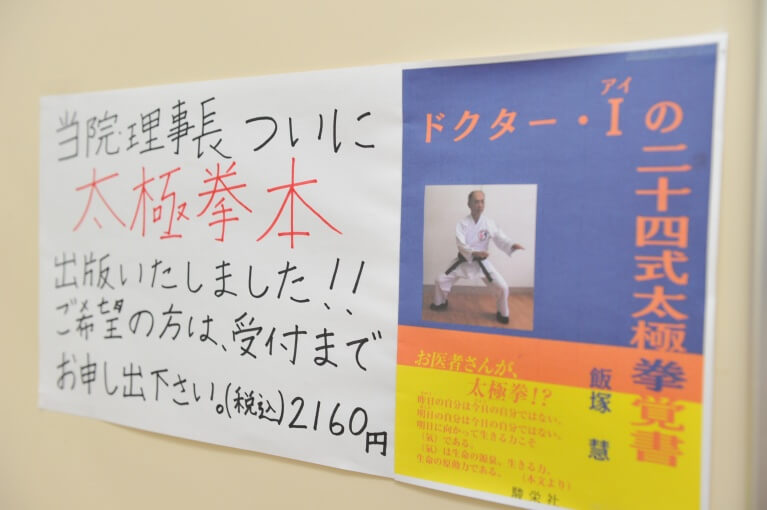 当院・理事長 ついに
太極拳本
出版いたしました!!
ご希望の方は、受付まで
お申し出下さい。(税込)2160円
アイ
ドクター・Iの二十四式太極拳覚書
飯塚 慧
お医者さんが、
太極拳!?
昨日の自分は今日の自分ではない、
明日の自分は今日の自分ではない、
明日に向かって生きる力こそ
〈気〉である。
〈気〉は生命の源泉、生きる力、
生命の原動力である。 (本文より)
駿栄社